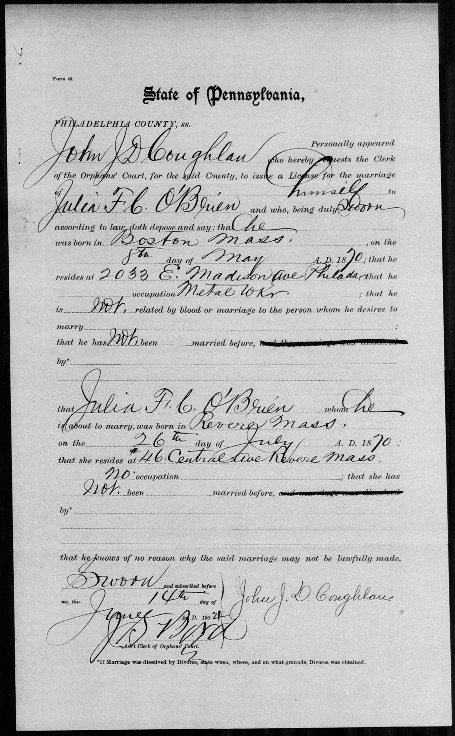 Form 40.
State of Pennsylvania,
PHILADELPHIA COUNTY, ss.
Personally appeared
John J D Coughlan who hereby requests the Clerk
of the Orphans' Court, for the said County, to issue a License for the marriage
of himself to
Julia F. C. O'Brien and who, being duly Sworn
according to law, doth depose and say: that he
was born in Boston Mass. , on the
8th day of May A. D. 1870; that he
resides at 2033 E. Madison Ave Philada that he
occupation Metal Wkr. ; that he
is not, related by blood or marriage to the person whom he desires to
marry ;
that he has Not, been married before,
by*
that Julia F. C. O'Brien whom he
is about to marry, was born in Revere Mass.
on the 26th day of July A. D. 1870 ;
that she resides at 46 Central Ave Revere Mass.
no occupation ; that she has
Not. been married before,
by*
that he knows of no reason why the said marriage may not be lawfully made.
Sworn and subscribed before
me, this 14th day of John J. D. Coughlan
June A. D. 190
Boyd
Ass't Clerk of Orphans' Court.
*If Marriage was dissolved by Divorce, state when, where, and on what grounds, Divorce was obtained.